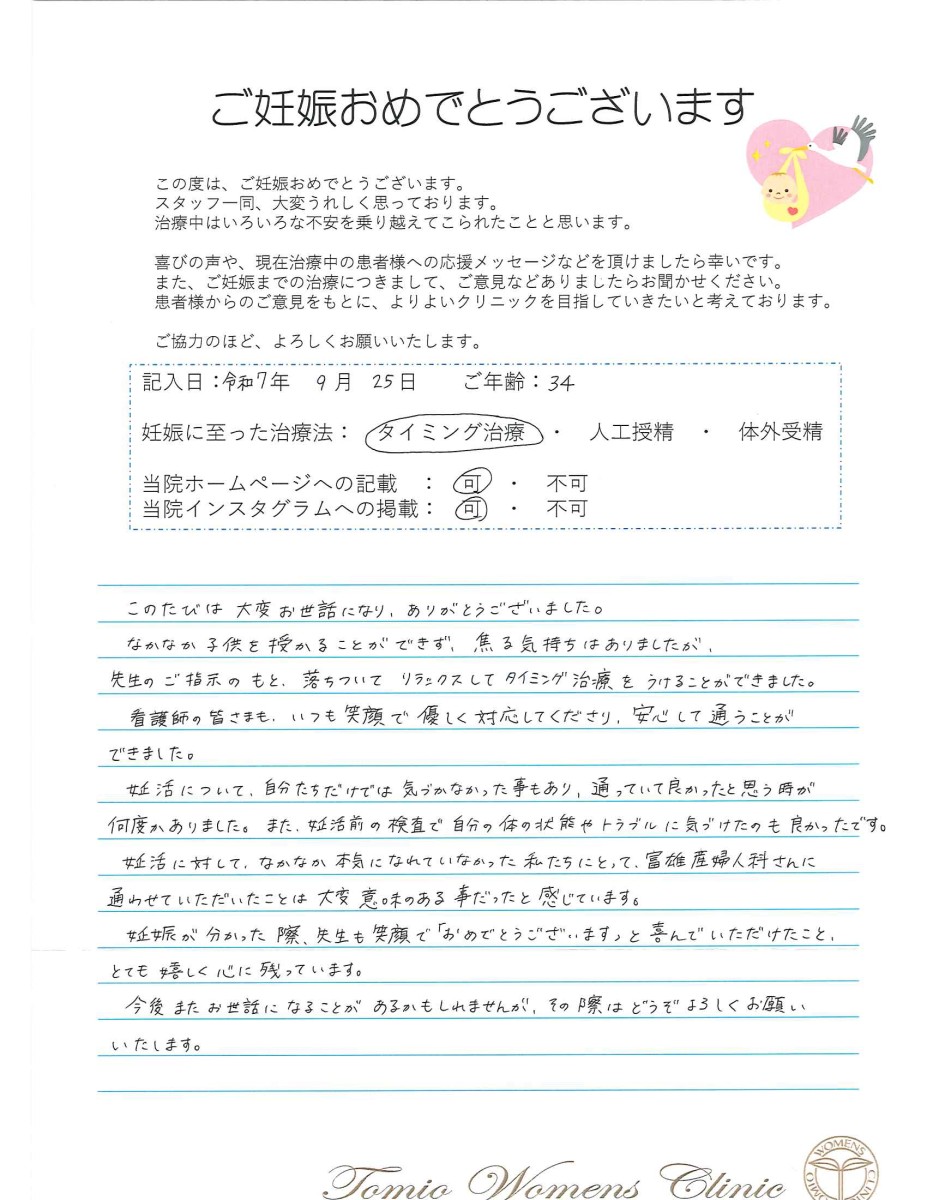 ご妊娠おめでとうございます
この度は、ご妊娠おめでとうございます。
スタッフ一同、大変うれしく思っております。
治療中はいろいろな不安を乗り越えてこられたことと思います。
喜びの声や、現在治療中の患者様への応援メッセージなどを頂けましたら幸いです。
また、ご妊娠までの治療につきまして、ご意見などありましたらお聞かせください。
患者様からのご意見をもとに、よりよいクリニックを目指していきたいと考えております。
ご協力のほど、よろしくお願いいたします。
記入日：令和7年 9月 25日 ご年齢：34
妊娠に至った治療法： タイミング治療 ・ 人工授精 ・ 体外受精
当院ホームページへの記載 ： 可 ・ 不可
当院インスタグラムへの掲載： 可 ・ 不可
このたびは大変お世話になり、ありがとうございました。
なかなか子供を授かることができず、焦る気持ちはありましたが、
先生のご指示のもと、落ちついてリラックスしてタイミング治療をうけることができました。
看護師の皆さまも、いつも笑顔で優しく対応してくださり、安心して通うことが
できました。
妊活について、自分たちだけでは気づかなかった事もあり、通っていて良かったと思う時が
何度かありました。また、妊活前の検査で自分の体の状態やトラブルに気づけたのも良かったです。
妊活に対して、なかなか本気になれていなかった私たちにとって、富雄産婦人科さんに
通わせていただいたことは大変意味のある事だったと感じています。
妊娠が分かった際、先生も笑顔で「おめでとうございます」と喜んでいただけたこと、
とても嬉しく心に残っています。
今後またお世話になることがあるかもしれませんが、その際はどうぞよろしくお願い
いたします。
Tomio Womens Clinic
WOMENS